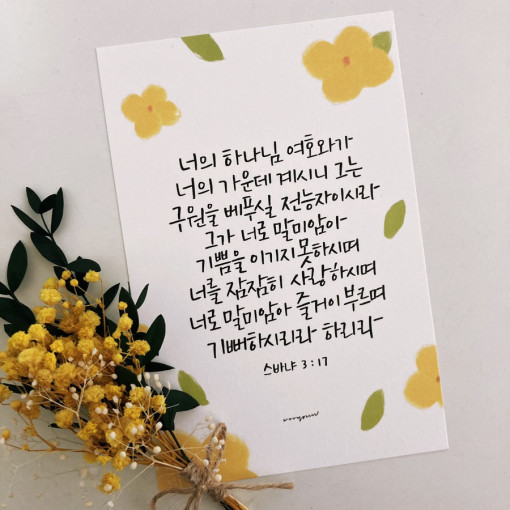 너의 하나님 여호와가
너의 가운데 계시니 그는
구원을 베푸실 전능자이시라
그가 너로 말미암아
기쁨을 이기지못하시며
너를 잠잠히 사랑하시며
너로 말미암아 즐거이 부르며
기뻐하시리라 하리라
스바냐 3:17